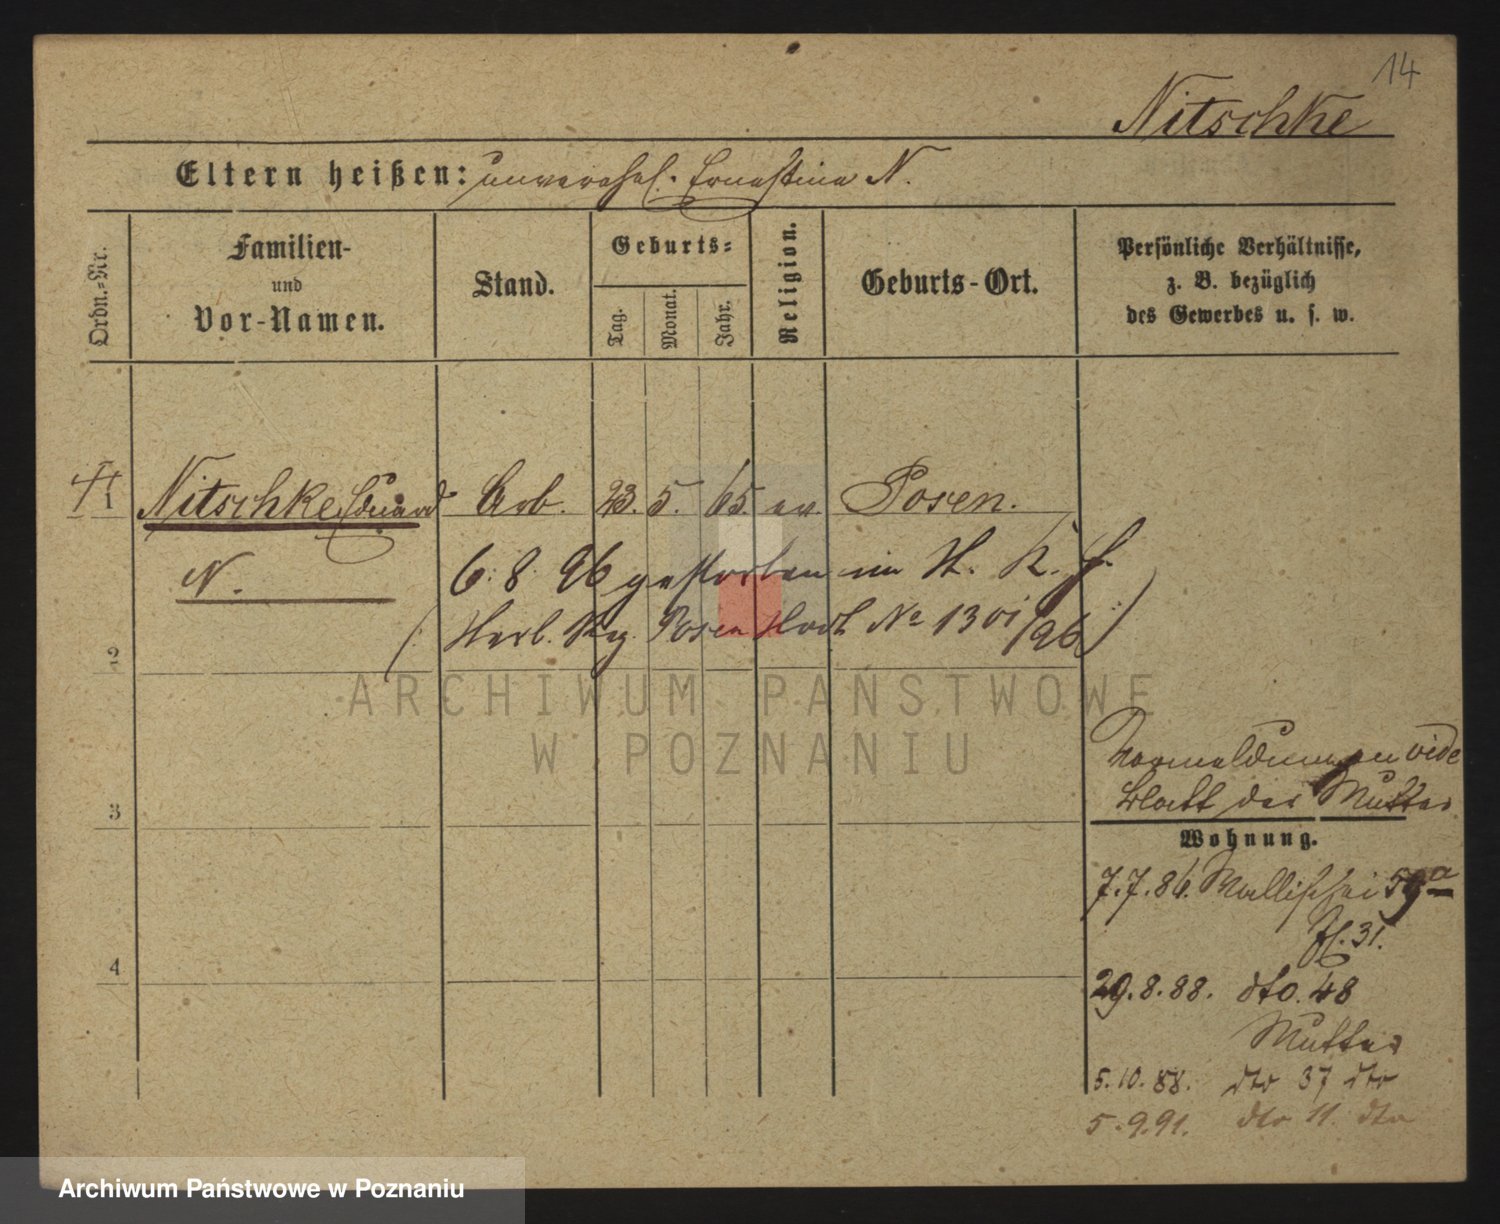 14
Nitschke
Eltern heißen: unverehel. Ernestine N.
Ordn.-Nr.
Familien-
und
Vor-Namen.
Stand.
Geburts-
Tag.
Monat.
Jahr.
Religion.
Geburts-Ort.
Persönliche Verhältnisse,
z. B. bezüglich
des Gewerbes u. s. w.
1 Nitschke Eduard Arb. 23. 5. 65. ev. Posen.
N. 6. 8. 96 gestorben im St. K. H.
(Sterb. Reg. Posen Stadt № 1301/96)
2
ARCHIWUM PAŃSTWOWE
W POZNANIU
3
4
Vormeldungen vide
Blatt der Mutter
Wohnung.
7.7.86. Wallischei 59a
31.
29.8.88. dto. 48
Mutter
5.10.88. dto 37 dto
5.9.91. dto 11. dto
Archiwum Państwowe w Poznaniu